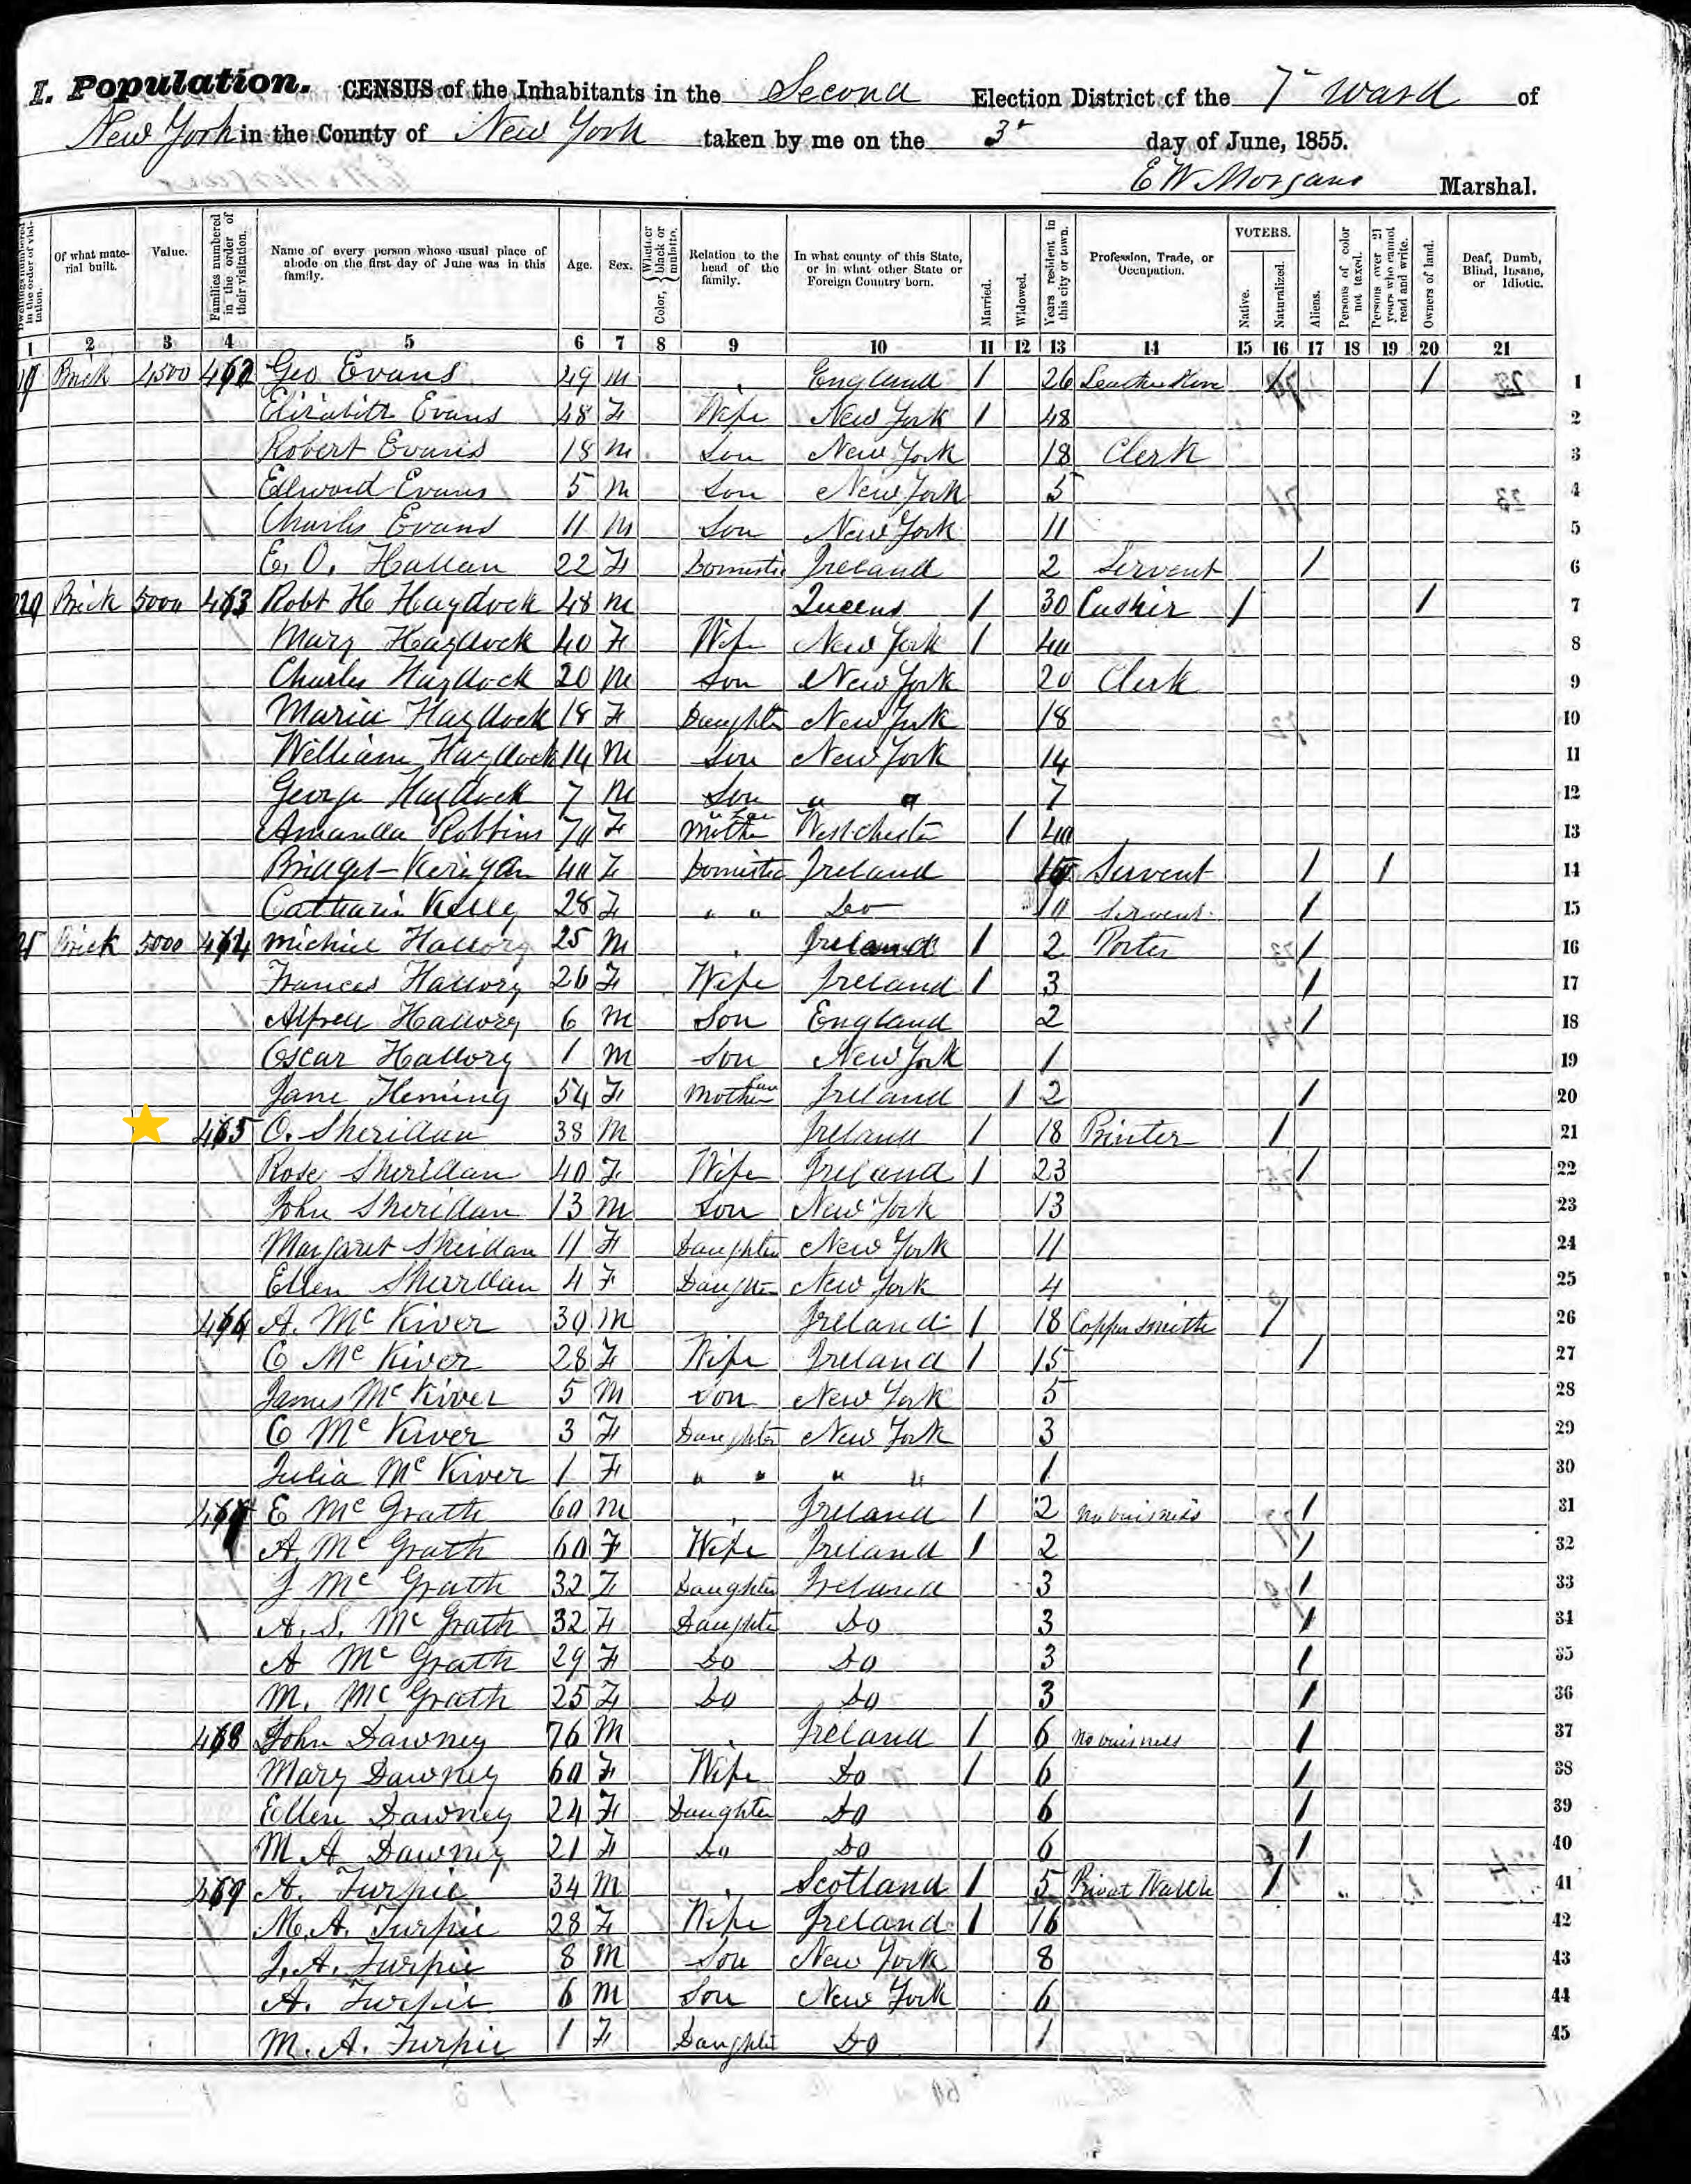 I. Population. CENSUS of the Inhabitants in the Second Election District of the 7th ward of
New York in the County of New York taken by me on the 3d day of June, 1855.
E W Morgans Marshal.
Dwellings numbered in the order of visitation.
Of what material built.
Value.
Families numbered in the order of their visitation.
Name of every person whose usual place of abode on the first day of June was in this family.
Age.
Sex.
Color, Whether black or mulatto.
Relation to the head of the family.
In what county of this State, or in what other State or Foreign Country born.
Married.
Widowed.
Years resident in this city or town.
Profession, Trade, or Occupation.
VOTERS.
Native.
Naturalized.
Aliens.
Persons of color not taxed.
Persons over 21 years who cannot read and write.
Owners of land.
Deaf, Dumb, Blind, Insane, or Idiotic.
1 2 3 4 5 6 7 8 9 10 11 12 13 14 15 16 17 18 19 20 21
Brick 4500 462 Geo Evans 49 M England / 26 / / 1
Elizabith Evans 48 F Wife New York / 48 2
Robert Evans 18 M Son New York 18 Clerk 3
Edward Evans 5 M Son New York 5 4
Charles Evans 11 M Son New York 11 5
E. O. Hallan 22 F Domestic Ireland 2 Servent / 6
Brick 5000 463 Robt H Haydock 48 M Queens / 30 Cashir / / 7
Mary Haydock 40 F Wife New York / 40 8
Charles Haydock 20 M Son New York 20 Clerk 9
Maria Haydock 18 F Daughter New York 18 10
William Haydock 14 M Son New York 14 11
George Haydock 7 M Son " " 7 12
Amanda Robbins 70 F Mother Law Westchester / 40 13
Bridget Kerigan 40 F Domestic Ireland Servent / / 14
Catharin Kelly 28 F " " Do 10 Servent / 15
Brick 5000 464 Michiel Hallory 25 M Ireland / 2 Porter / 16
Frances Hallory 26 F Wife Ireland / 3 / 17
Alfred Hallory 6 M Son England 2 / 18
Oscar Hallory 1 M Son New York 1 19
Jane Fleming 54 F Mother Law Ireland / 2 / 20
465 O. Sheridan 38 M Ireland / 18 Printer / 21
Rose Sheridan 40 F Wife Ireland / 23 / 22
John Sheridan 13 M Son New York 13 23
Margaret Sheridan 11 F Daughter New York 11 24
Ellen Sheridan 4 F Daughter New York 4 25
466 A. McKiver 30 M Ireland / 18 Coppersmith / 26
C McKiver 28 F Wife Ireland / 15 / 27
James McKiver 5 M Son New York 5 28
C McKiver 3 F Daughter New York 3 29
Julia McKiver 1 F " " " " 1 30
467 E McGrath 60 M Ireland / 2 No buisness / 31
A. McGrath 60 F Wife Ireland / 2 / 32
J McGrath 32 F Daughter Ireland 3 / 33
A. S. McGrath 32 F Daughter Do 3 / 34
A McGrath 29 F Do Do 3 / 35
M. McGrath 25 F Do Do 3 / 36
468 John Dawney 76 M Ireland / 6 No buisness / 37
Mary Dawney 60 F Wife Do / 6 / 38
Ellen Dawney 24 F Daughter Do 6 / 39
M A Dawney 21 F Do Do 6 / 40
469 A. Turpie 34 M Scotland / 5 / 41
M. A. Turpie 28 F Wife Ireland / 16 42
J. A. Turpie 8 M Son New York 8 43
A. Turpie 6 M Son New York 6 44
M. A. Turpie 1 F Daughter Do 1 45